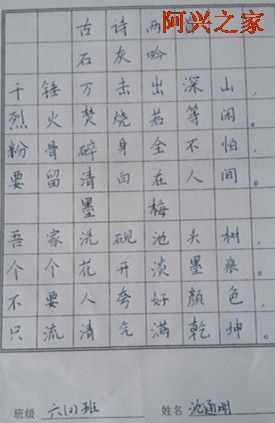 阿兴之家
古诗两
石灰吟
千锤万击出深山，
烈火焚烧若等闲。
粉骨碎身全不怕，
要留清白在人间。
墨梅
吾家洗砚池头树，
个个花开淡墨痕。
不要人夸好颜色，
只流清气满乾坤。
班级 六(2)班 姓名